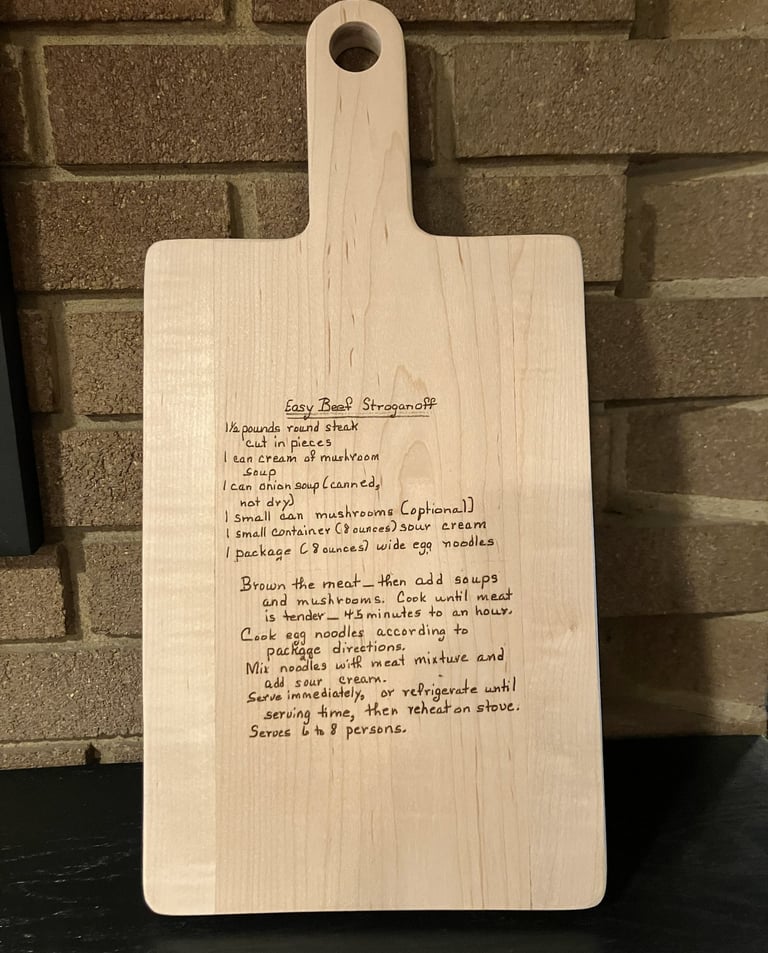 Easy Beef Stroganoff
1½ pounds round steak
cut in pieces
1 can cream of mushroom
soup
1 can onion soup (canned,
not dry)
1 small can mushrooms (optional)
1 small container (8 ounces) sour cream
1 package (8 ounces) wide egg noodles
Brown the meat — then add soups
and mushrooms. Cook until meat
is tender — 45 minutes to an hour.
Cook egg noodles according to
package directions.
Mix noodles with meat mixture and
add sour cream.
Serve immediately, or refrigerate until
serving time, then reheat on stove.
Serves 6 to 8 persons.